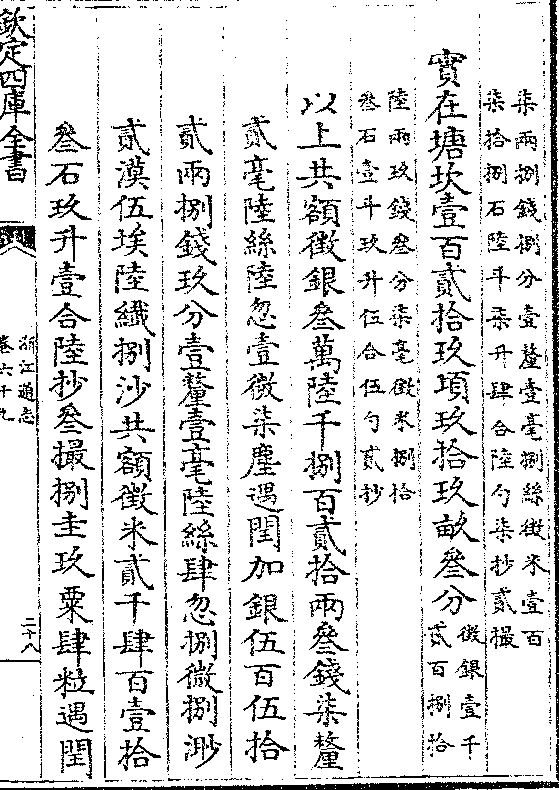 柒兩捌錢捌分壹釐壹毫捌絲徵米壹百
柒拾捌石陸斗柒升肆合陸勺柒抄貳撮
實在塘坎壹百貳拾玖項玖拾玖畝叄分
徵銀壹千
貳百捌拾
陸兩玖錢叄分柒毫徵米捌拾
叄石壹斗玖升伍合伍勺貳抄
以上共額徵銀叄萬陸千捌百貳拾兩叄錢柒釐
貳毫陸絲陸忽壹微柒塵遇閏加銀伍百伍拾
貳兩捌錢玖分壹釐壹毫陸絲肆忽捌微捌渺
貳漠伍埃陸纖捌沙共額徵米貳千肆百壹拾
叄石玖升壹合陸抄叄撮捌圭玖粟肆粒遇閏
欽定四庫全書
浙江通志
卷六十九
二十八